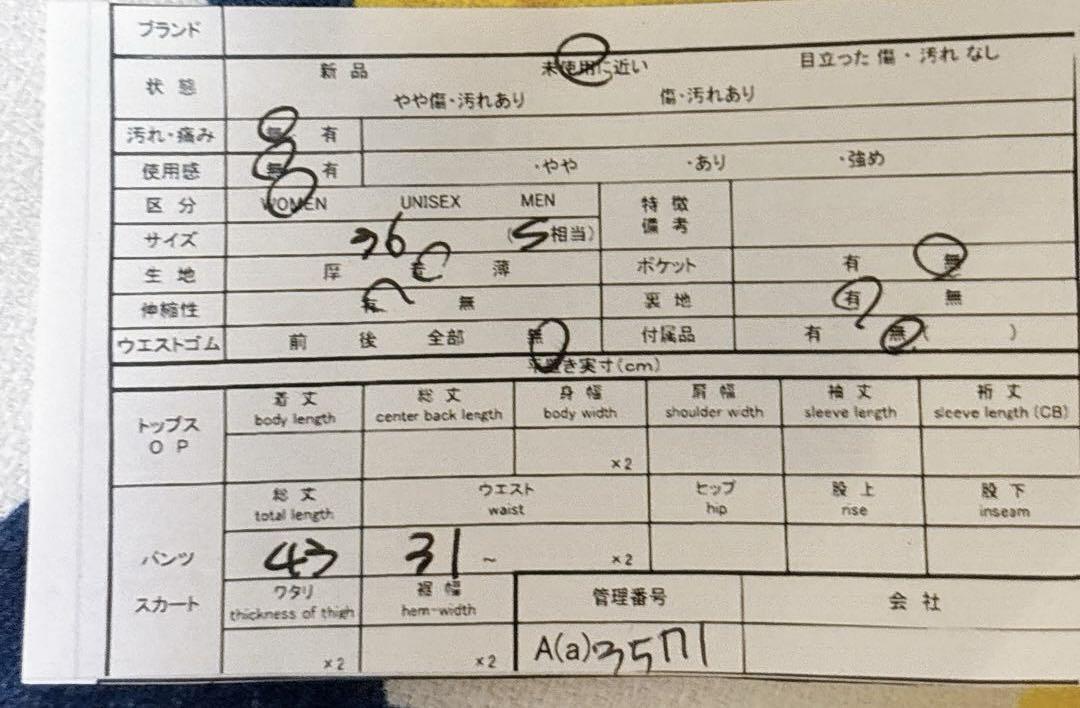 ブランド
状態 新品 未使用に近い 目立った傷・汚れなし
やや傷・汚れあり 傷・汚れあり
汚れ・痛み 無・有
使用感 無 有 ・やや ・あり ・強め
区分 WOMEN UNISEX MEN 特徴
備考
サイズ 36 (S相当)
生地 厚 普 薄 ポケット 有 無
伸縮性 有 無 裏地 有 無
ウエストゴム 前 後 全部 無 付属品 有 無( )
平置き実寸(cm)
トップス
OP
着丈 総丈 身幅 肩幅 袖丈 裄丈
body length center back length body width shoulder wdth sleeve length sleeve length (CB)
×2
総丈 ウエスト ヒップ 股上 股下
total length waist hip rise inseam
パンツ 43 31 ~ ×2
スカート
ワタリ 裾幅 管理番号 会社
thickness of thigh hem-width
×2 ×2 A(a)3571